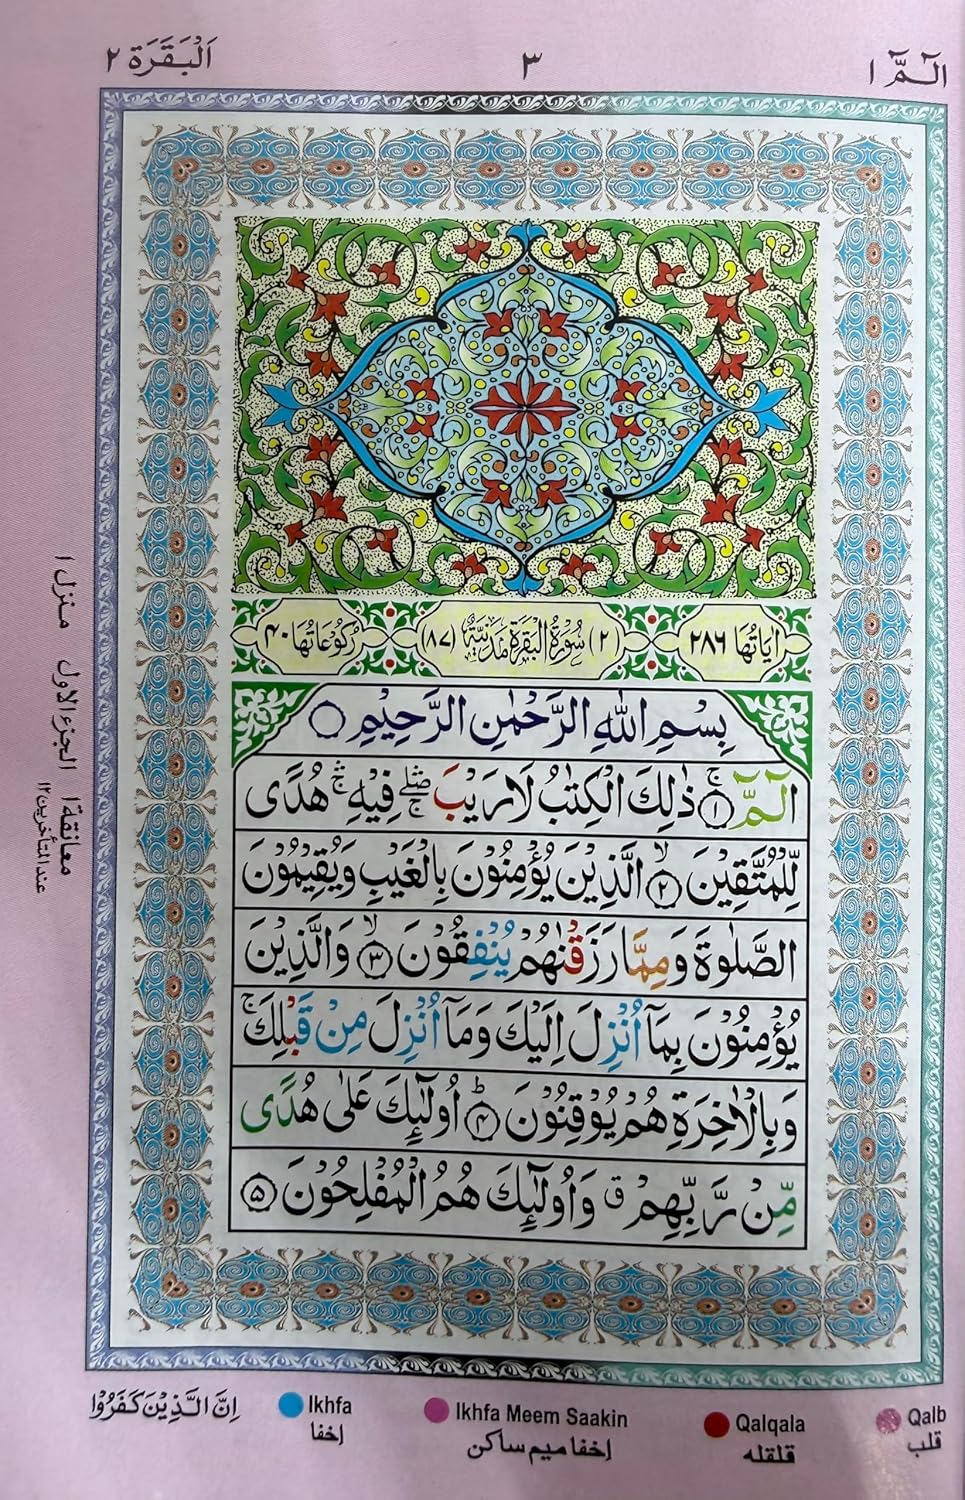 الٓمّٓ ١
٣
اَلْبَقَرَة ٢
اٰيَاتُهَا ٢٨٦
(٢) سُوْرَةُ الْبَقَرَةِ مَدَنِيَّةٌ (٨٧)
رُكُوْعَاتُهَا ٤٠
بِسْمِ اللّٰهِ الرَّحْمٰنِ الرَّحِيْمِ ۝
الٓمّٓ ۚ ۝١ ذٰلِكَ الْكِتٰبُ لَا رَيْبَ ۛۖۚ فِيْهِ ۛۚ هُدًى
لِّلْمُتَّقِيْنَ ۙ ۝٢ الَّذِيْنَ يُؤْمِنُوْنَ بِالْغَيْبِ وَيُقِيْمُوْنَ
الصَّلٰوةَ وَمِمَّا رَزَقْنٰهُمْ يُنْفِقُوْنَ ۙ ۝٣ وَالَّذِيْنَ
يُؤْمِنُوْنَ بِمَآ اُنْزِلَ اِلَيْكَ وَمَآ اُنْزِلَ مِنْ قَبْلِكَ ۚ
وَبِالْاٰخِرَةِ هُمْ يُوْقِنُوْنَ ؕ ۝٤ اُولٰٓئِكَ عَلٰى هُدًى
مِّنْ رَّبِّهِمْ ۗ وَاُولٰٓئِكَ هُمُ الْمُفْلِحُوْنَ ۝٥
معانقة ١ الجزء الاول منزل ١
عند المتأخرين ١٢
اِنَّ الَّذِيْنَ كَفَرُوْا
Ikhfa
إخفا
Ikhfa Meem Saakin
إخفا ميم ساكن
Qalqala
قلقله
Qalb
قلب